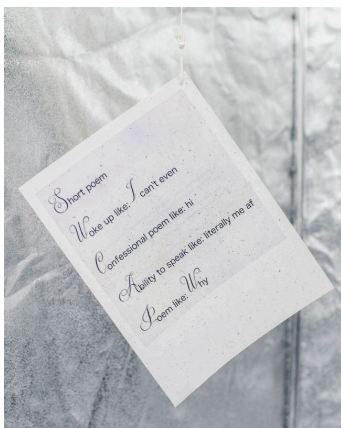 Short poem
Woke up like: I can't even
Confessional poem like: hi
Ability to speak like: literally me af
Poem like: Why